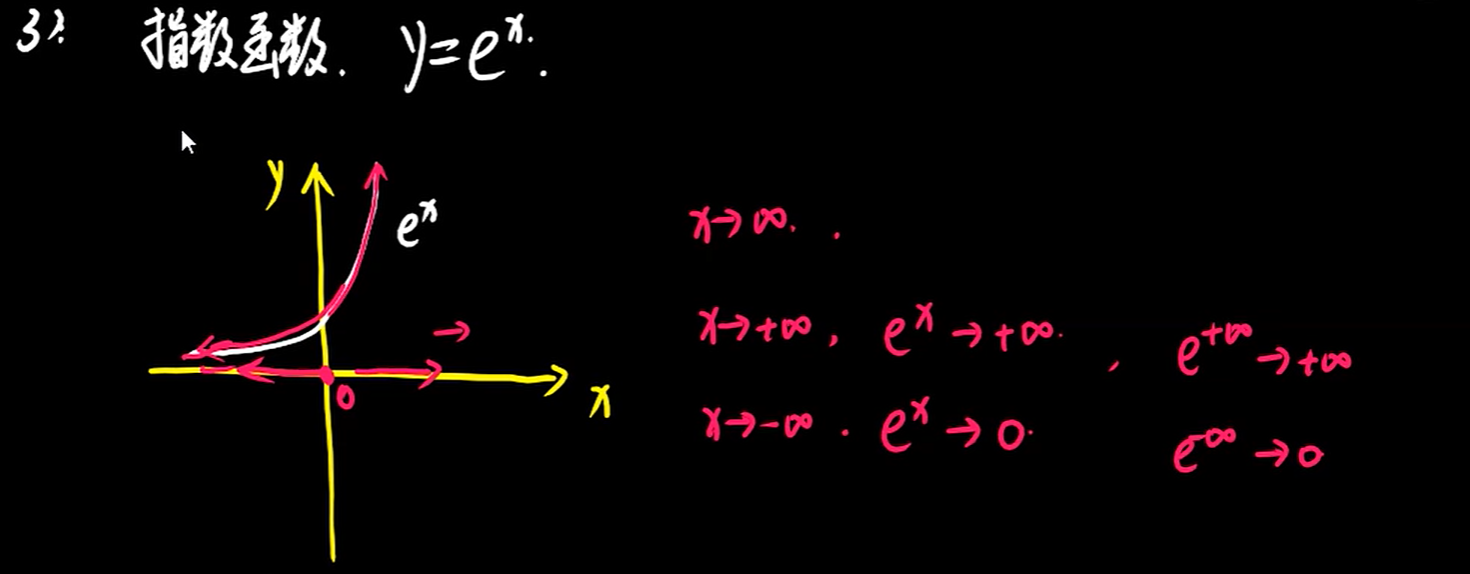 3). 指数函数. y=eˣ.
y
eˣ
0
x
x→∞.
x→+∞, eˣ→+∞. , e⁺∞→+∞
x→-∞. eˣ→0. e⁻∞→0